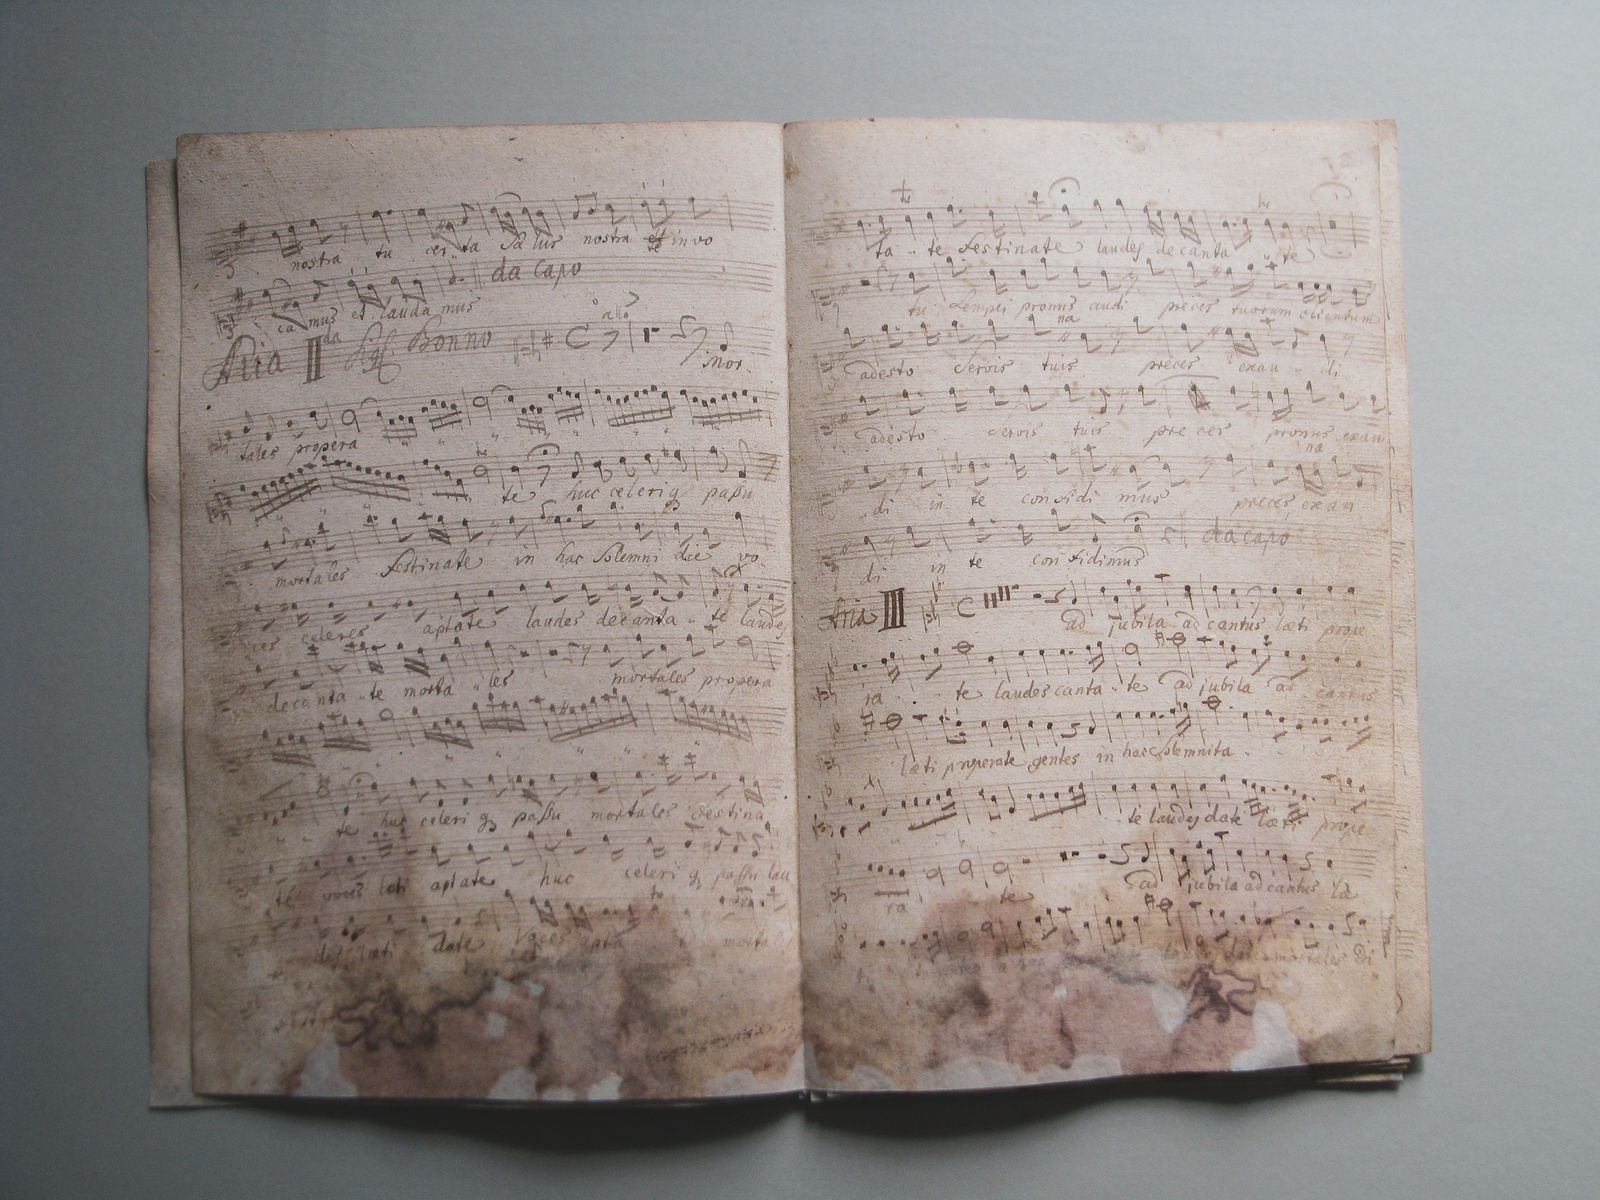 nostra tu cer..ta Salus nostra te invo
ca mus et lauda mus da capo
Aria II da Sigl. Bonno all? Mor.
tales propera
te huc celeri q passu
mortales festinate in hac solemni die vo
ces celeres aptate laudes decanta .. te laudes
decanta .. te morta .. les mortales propera
te huc celeri q passu mortales festina
te voces læti aptate huc celeri q passu lau
des læti date voces apta te morta
ta .. te festinate laudes decanta te
tu semper pronus audi preces tuorum clientum
na
adesto servis tuis preces exau .. di
adesto servis tuis preces pronus exau
na
di in te confidi mus preces exau
di in te confidimus da capo
Aria III ad jubila ad cantus læti prope
ra . te laudes canta .. te ad jubila ad cantus
læti properate gentes in hac solemnita .
te laudes date læti prope
ra te ad jubila ad cantus læ
mortales